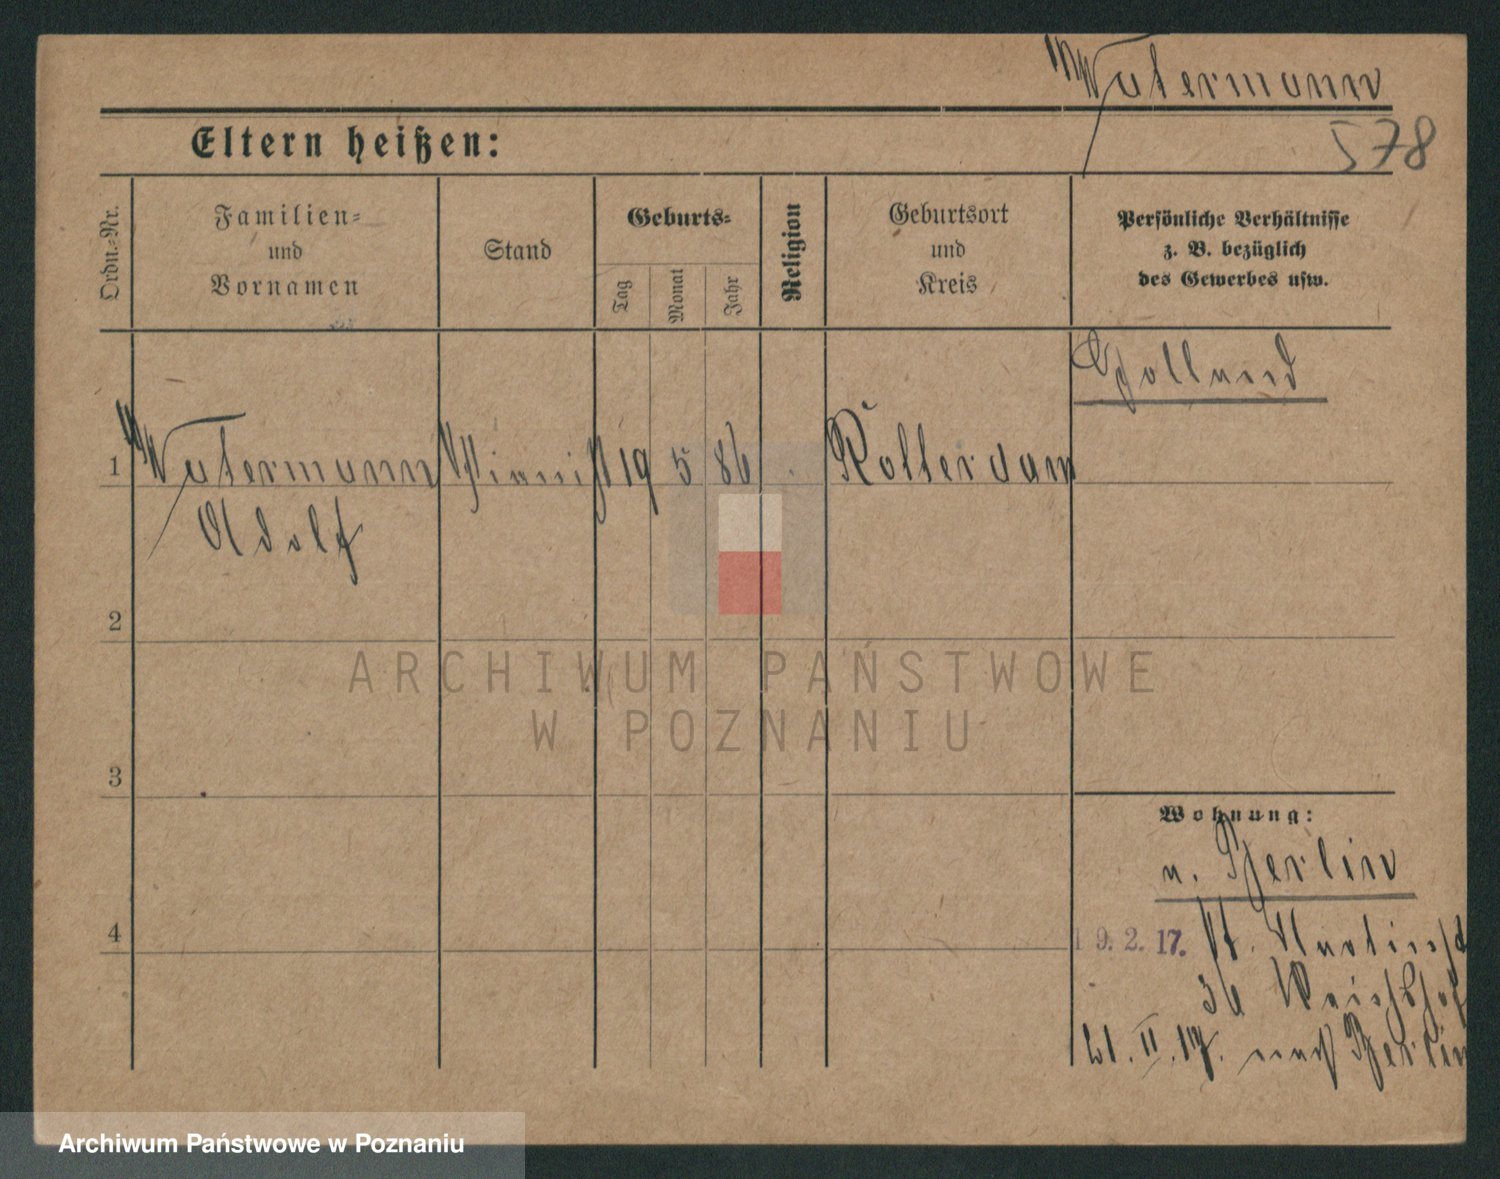 Watermann
578
Eltern heißen:
Ordn.-Nr.
Familien-
und
Vornamen
Stand
Geburts-
Tag
Monat
Jahr
Religion
Geburtsort
und
Kreis
Persönliche Verhältnisse
z. B. bezüglich
des Gewerbes usw.
Holland
1 Watermann Pianist 19 5 86 Rotterdam
Adolf
2
ARCHIWUM PAŃSTWOWE
W POZNANIU
3
Wohnung:
n. Berlin
4
19. 2. 17. St. Martinst
36 Reichshof
21. II. 17. nach Berlin
Archiwum Państwowe w Poznaniu